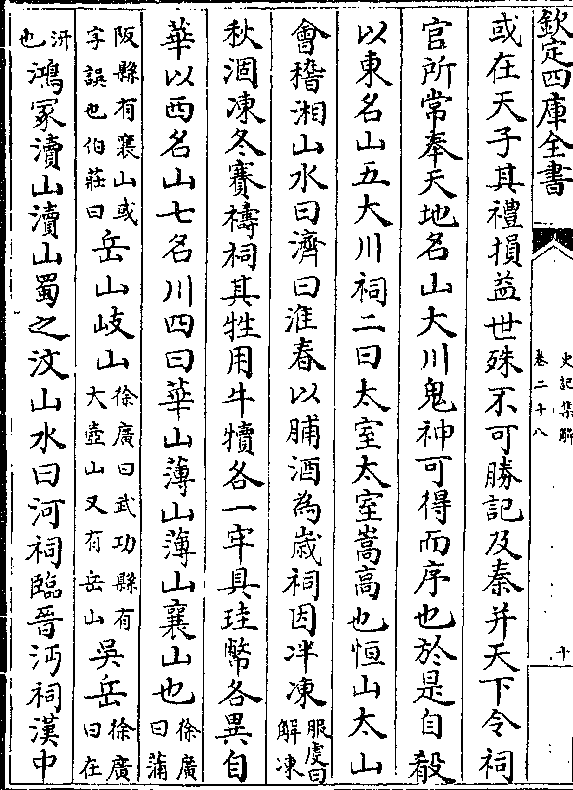 欽定四庫全書
史記集解
卷二十八
十
或在天子其禮損益世殊不可勝記及秦并天下令祠
官所常奉天地名山大川鬼神可得而序也於是自殽
以東名山五大川祠二曰太室太室嵩高也恒山太山
會稽湘山水曰濟曰淮春以脯酒為歲祠因泮凍服虔曰解凍
秋涸凍冬賽禱祠其牲用牛犢各一牢具珪幣各異自
華以西名山七名川四曰華山薄山薄山襄山也徐廣曰蒲
阪縣有襄山或字誤也伯莊曰岳山岐山徐廣曰武功縣有大壺山又有岳山吳岳徐廣曰在
汧也鴻冢瀆山瀆山蜀之汶山水曰河祠臨晉沔祠漢中